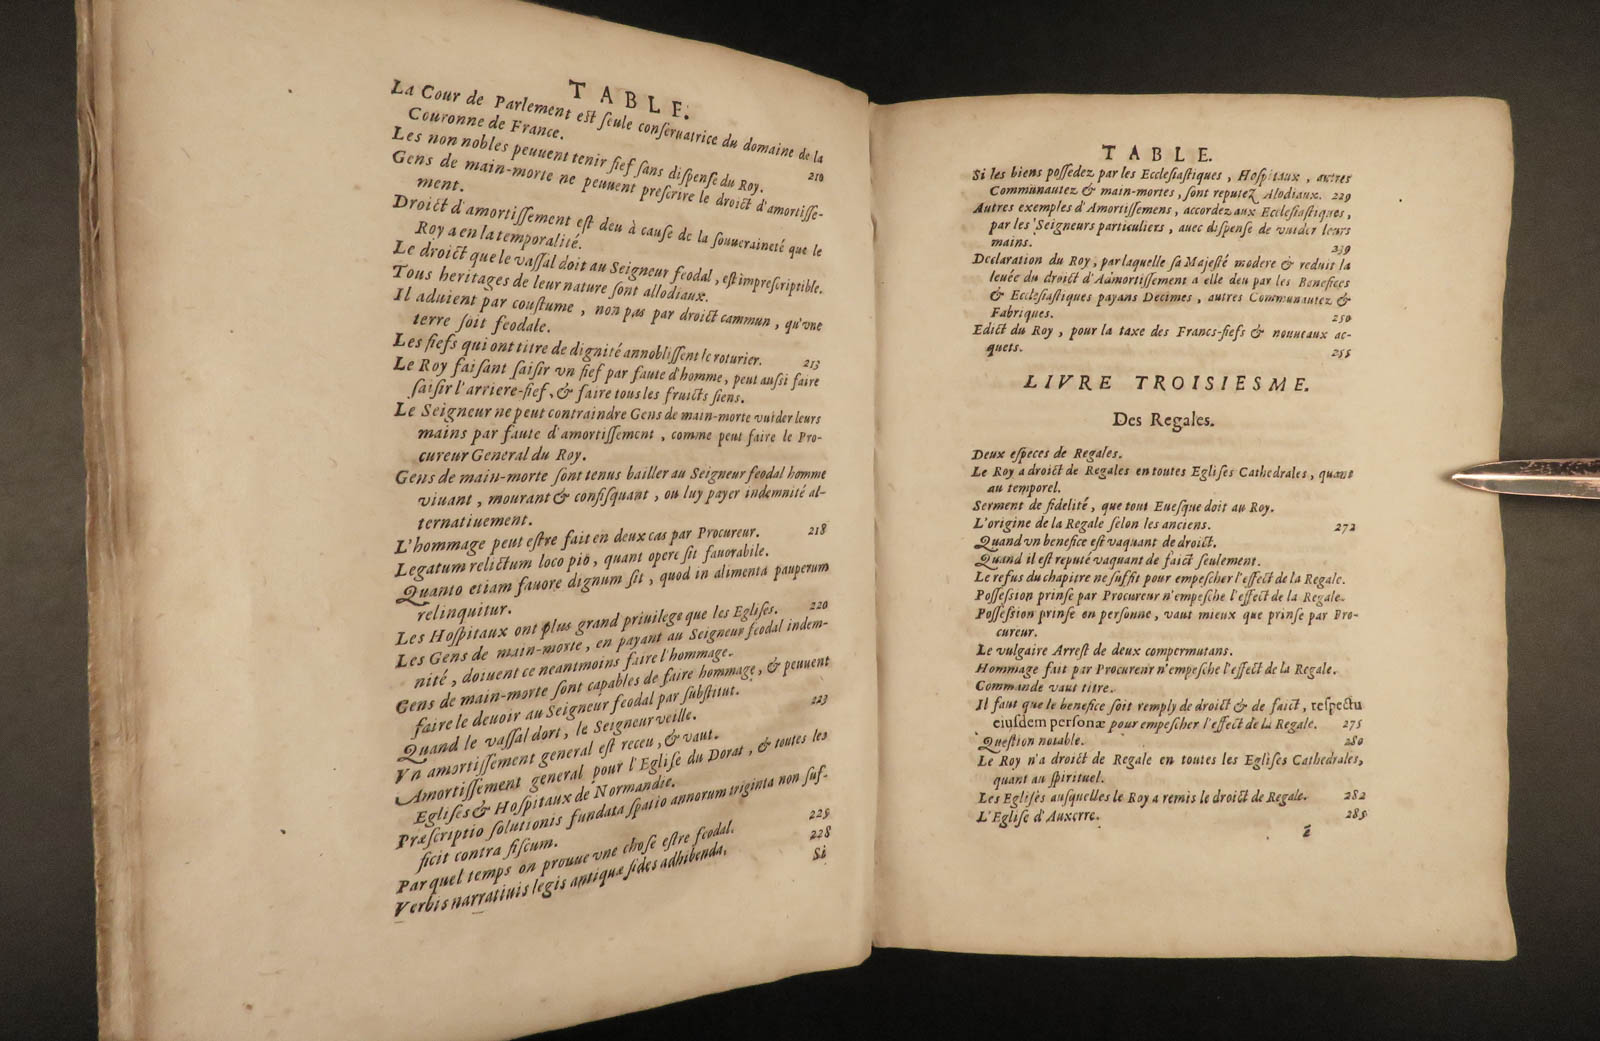 TABLE.
La Cour de Parlement est ſeule conſeruatrice du domaine de la
Couronne de France. 210
Les non nobles peuuent tenir fief ſans diſpenſe du Roy.
Gens de main-morte ne peuuent preſcrire le droict d'amortiſſe-
ment.
Droict d'amortiſſement eſt deu à cauſe de la ſouueraineté que le
Roy a en la temporalité.
Le droict que le vaſſal doit au Seigneur feodal, eſt impreſcriptible.
Tous heritages de leur nature ſont allodiaux.
Il aduient par couſtume, non pas par droict cammun, qu'vne
terre ſoit feodale.
Les fiefs qui ont titre de dignité annobliſſent le roturier. 213
Le Roy faiſant ſaiſir vn fief par faute d'homme, peut auſſi faire
ſaiſir l'arriere-fief, & faire tous les fruicts ſiens.
Le Seigneur ne peut contraindre Gens de main-morte vuider leurs
mains par faute d'amortiſſement, comme peut faire le Pro-
cureur General du Roy.
Gens de main-morte ſont tenus bailler au Seigneur feodal homme
viuant, mourant & confiſquant, ou luy payer indemnité al-
ternatiuement.
L'hommage peut eſtre fait en deux cas par Procureur. 218
Legatum relictum loco pio, quant opere ſit fauorabile.
Quanto etiam fauore dignum ſit, quod in alimenta pauperum
relinquitur.
Les Hoſpitaux ont plus grand priuilege que les Egliſes. 220
Les Gens de main-morte, en payant au Seigneur feodal indem-
nité, doiuent ce neantmoins faire l'hommage.
Gens de main-morte ſont capables de faire hommage, & peuuent
faire le deuoir au Seigneur feodal par ſubſtitut.
Quand le vaſſal dort, le Seigneur veille. 223
Vn amortiſſement general eſt receu, & vaut.
Amortiſſement general pour l'Egliſe du Dorat, & toutes les
Egliſes & Hoſpitaux de Normandie.
Præſcriptio ſolutionis fundata ſpatio annorum triginta non ſuf-
ficit contra fiſcum.
Par quel temps on prouue vne choſe eſtre feodal. 225
Verbis narratiuis legis antiquæ fides adhibenda. 228
Si
TABLE.
Si les biens poſſedez par les Eccleſiaſtiques, Hoſpitaux, autres
Communautez & main-mortes, ſont reputez Alodiaux. 229
Autres exemples d'Amortiſſemens, accordez aux Eccleſiaſtiques,
par les Seigneurs particuliers, auec diſpenſe de vuider leurs
mains. 239
Declaration du Roy, par laquelle ſa Majeſté modere & reduit la
leuée du droict d'Admortiſſement à elle deu par les Benefices
& Eccleſiaſtiques payans Decimes, autres Communautez &
Fabriques. 250
Edict du Roy, pour la taxe des Francs-fiefs & nouueaux ac-
quets. 255
LIVRE TROISIESME.
Des Regales.
Deux eſpeces de Regales.
Le Roy a droict de Regales en toutes Egliſes Cathedrales, quant
au temporel.
Serment de fidelité, que tout Eueſque doit au Roy.
L'origine de la Regale ſelon les anciens. 272
Quand vn benefice eſt vaquant de droict.
Quand il eſt reputé vaquant de faict ſeulement.
Le refus du chapitre ne ſuffit pour empeſcher l'effect de la Regale.
Poſſeſſion prinſe par Procureur n'empeſche l'effect de la Regale.
Poſſeſſion prinſe en perſonne, vaut mieux que prinſe par Pro-
cureur.
Le vulgaire Arreſt de deux compermutans.
Hommage fait par Procureur n'empeſche l'effect de la Regale.
Commande vaut titre.
Il faut que le benefice ſoit remply de droict & de faict, reſpectu
eiuſdem perſonæ pour empeſcher l'effect de la Regale. 275
Queſtion notable. 280
Le Roy n'a droict de Regale en toutes les Egliſes Cathedrales,
quant au ſpirituel.
Les Egliſes auſquelles le Roy a remis le droict de Regale. 282
L'Egliſe d'Auxerre. 285